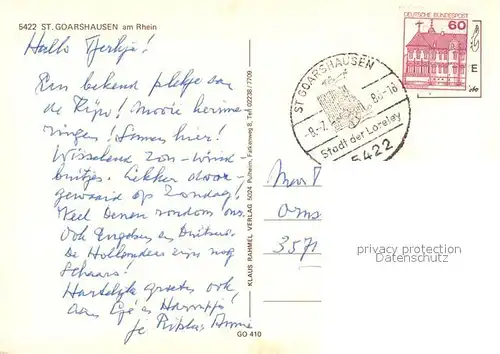 5422 ST. GOARSHAUSEN am Rhein
Hallo
Een bekend plekje aan
de Rijn! Mooie herinne
ringen! Samen hier!
Wisselend zon - wind
buitjes. Lekker door-
gewaaid op Zondag!
Veel Denen rondom ons
Ook Engelsen en Duitsers.
De Hollanders zijn nog
Schaars!
Hartelijke groeten ook
aan
je
KLAUS RAHMEL VERLAG 5024 Pulheim, Falkenweg 8, Tel. 02238 / 7709
GO 410
DEUTSCHE BUNDESPOST
60
E
ST GOARSHAUSEN
-8.-7. 86-18
Stadt der Loreley
5422
3571
privacy protection
Datenschutz